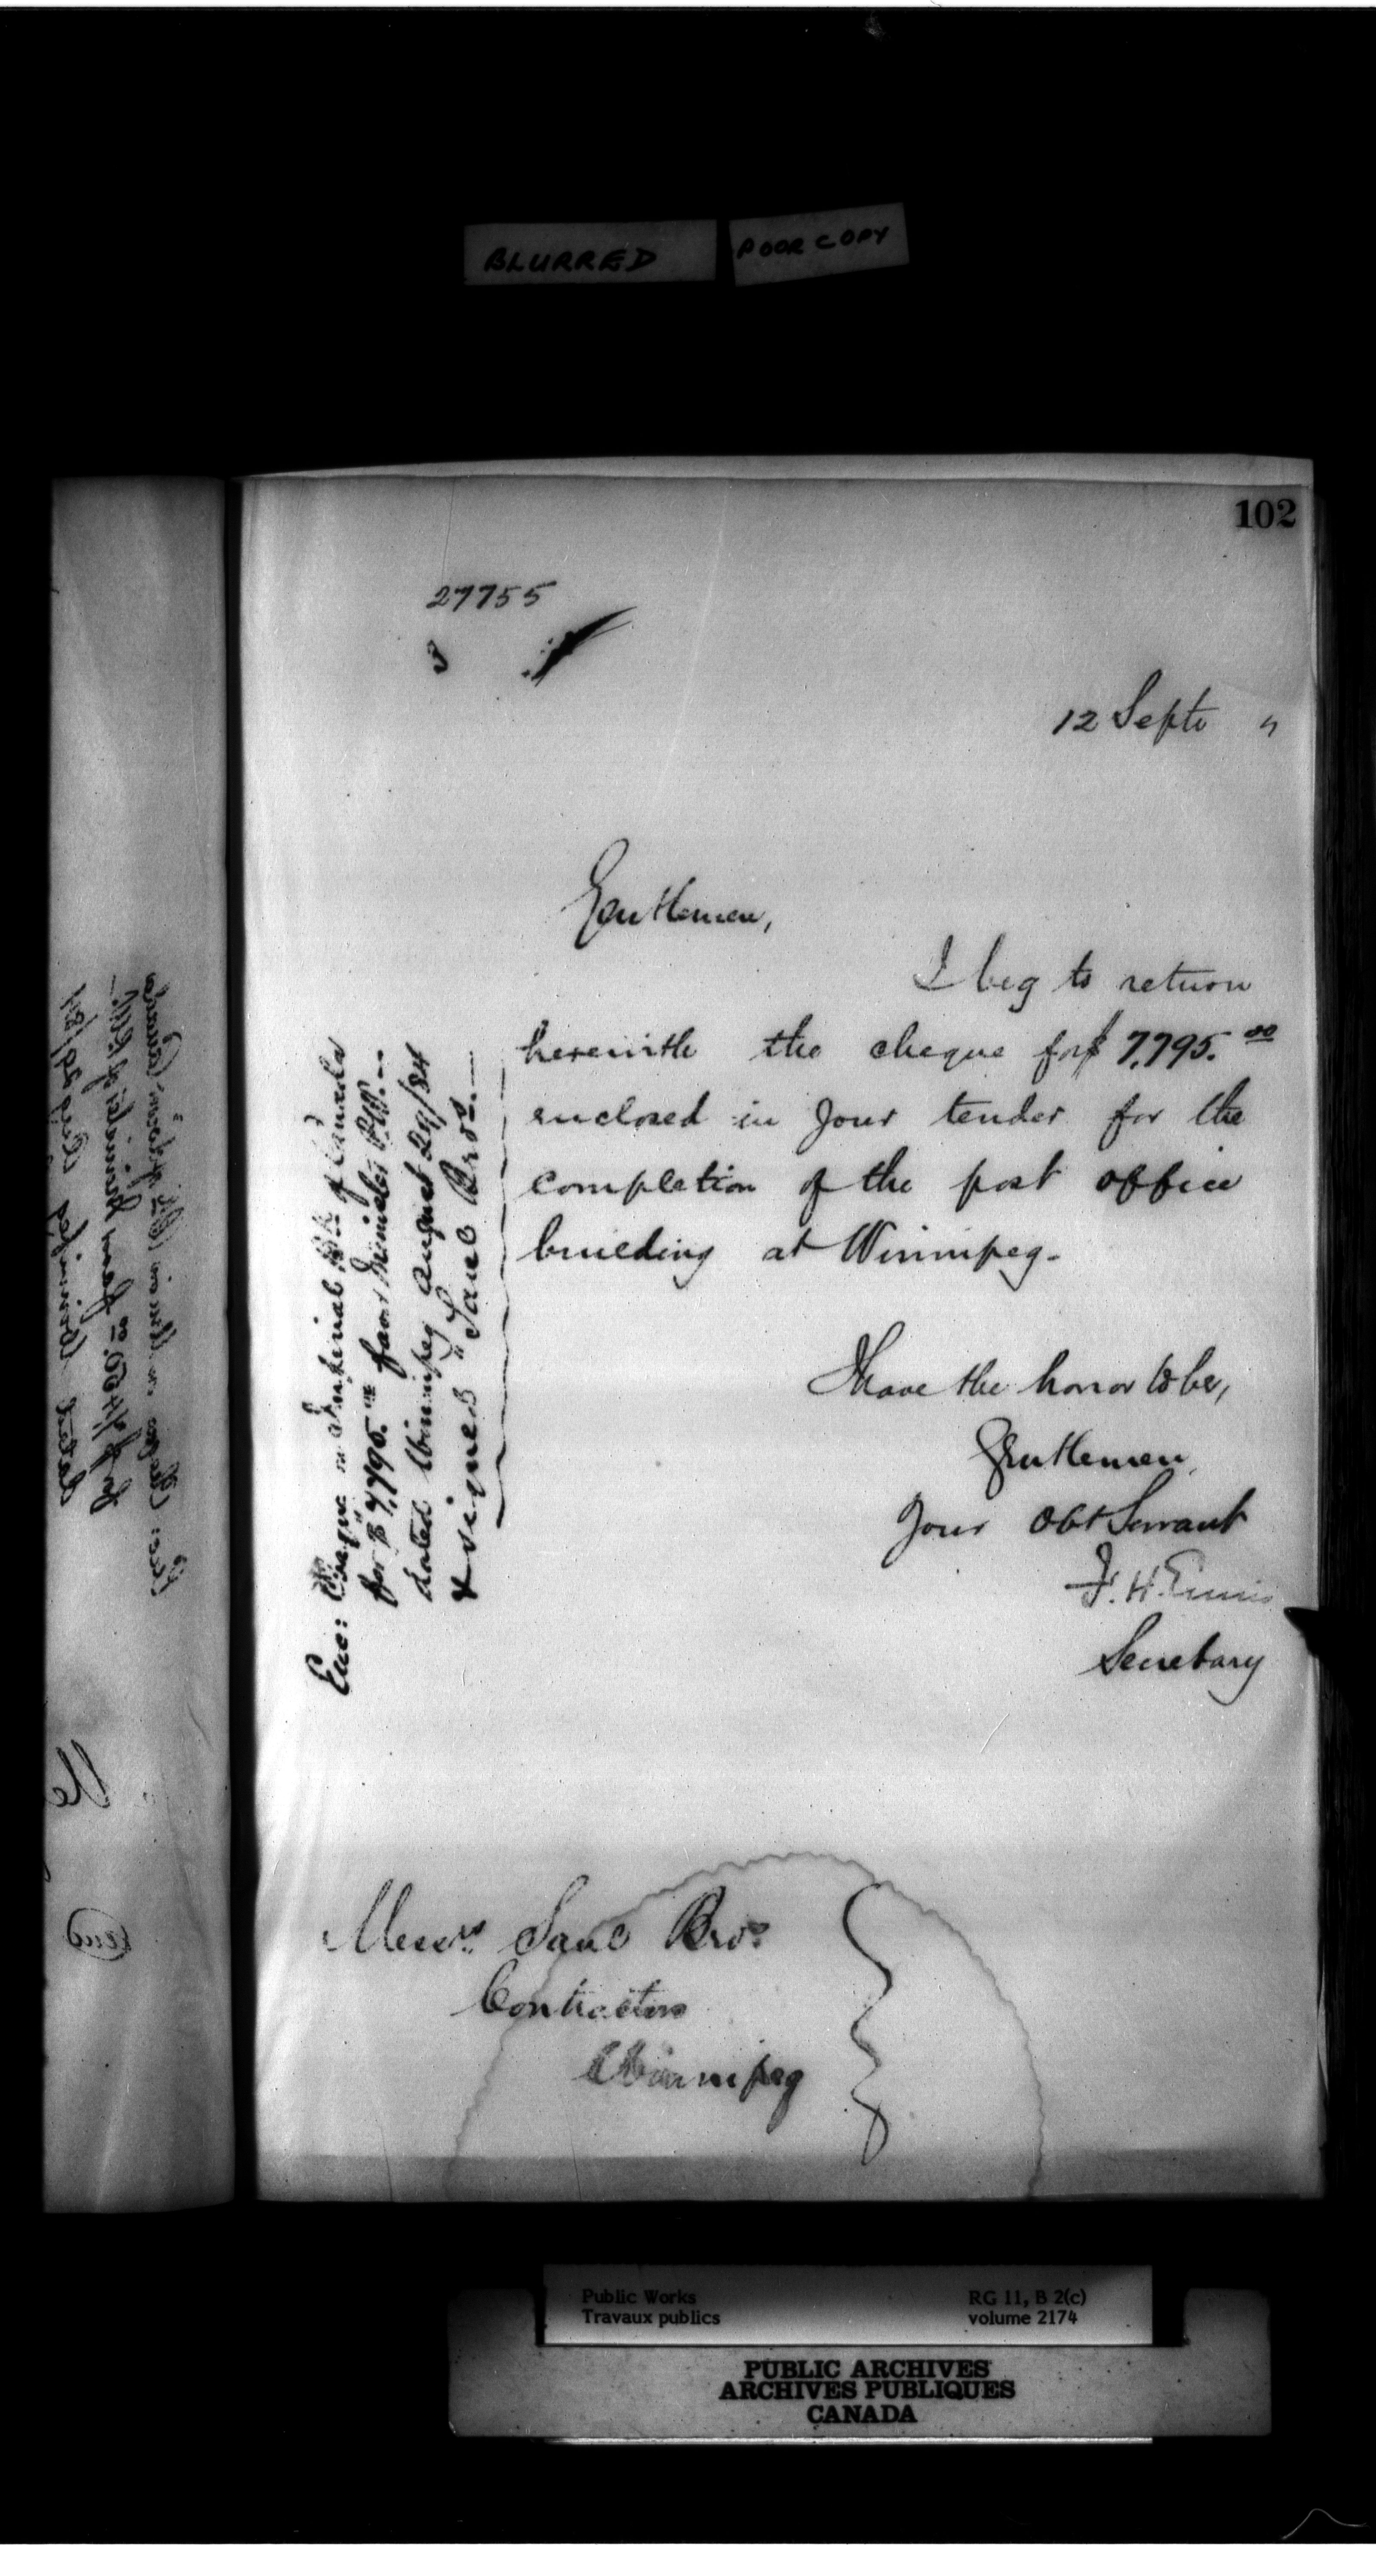 BLURRED POOR COPY
102
27755
12 Septr "
Gentlemen,
I beg to return
herewith the cheque for $7,795.00
enclosed in your tender for the
completion of the post office
building at Winnipeg-
I have the honor to be,
Gentlemen,
Your Obt Servant
F. H. Ennis
Secretary
Enc: Cheque on Imperial Bk of Canada
for $7,795.00 favor Minister P.W.--
dated Winnipeg August 29/84
& signed "Saul Bros.--
Messrs Saul Bros
Contractors
Winnipeg
Public Works
Travaux publics
RG 11, B 2(c)
volume 2174
PUBLIC ARCHIVES
ARCHIVES PUBLIQUES
CANADA